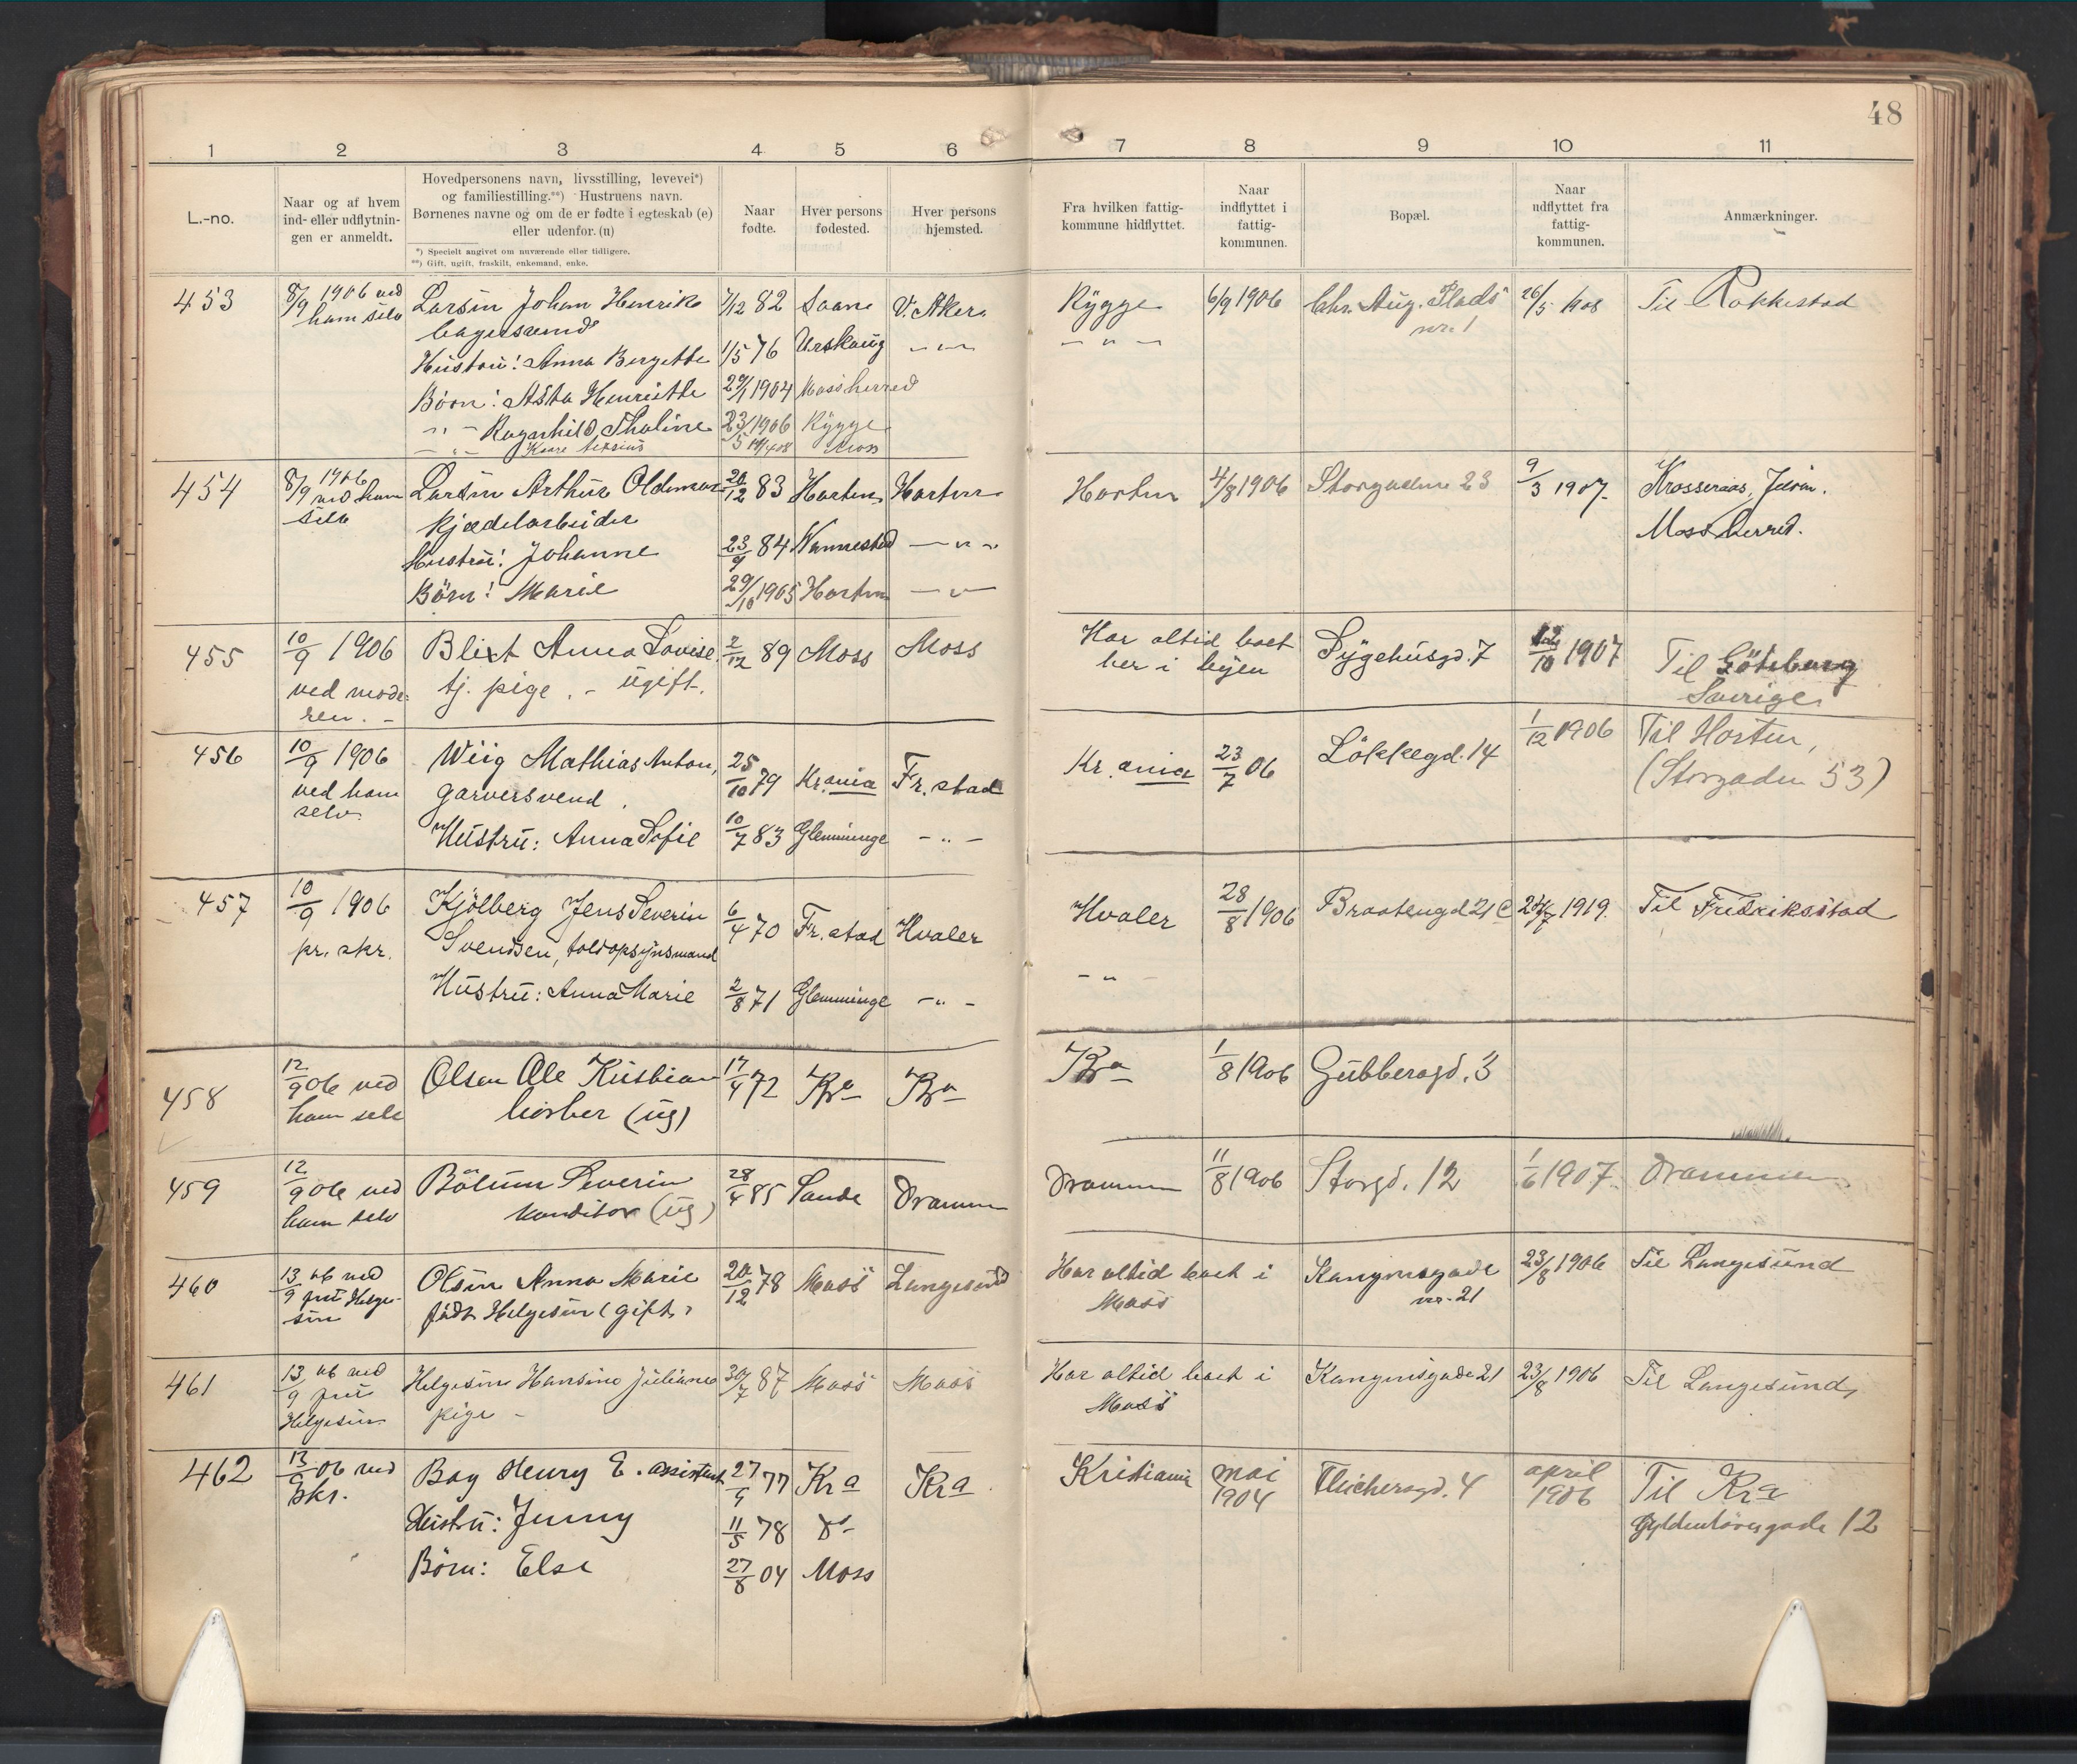 48
1 2 3 4 5 6 7 8 9 10 11
L.-no.
Naar og af hvem
ind- eller udflytnin-
gen er anmeldt.
Hovedpersonens navn, livsstilling, levevei*)
og familiestilling.**) Hustruens navn.
Børnenes navne og om de er fødte i egteskab (e)
eller udenfor. (u)
*) Specielt angivet om nuværende eller tidligere.
**) Gift, ugift, fraskilt, enkemand, enke.
Naar
fødte.
Hver persons
fødested.
Hver persons
hjemsted.
Fra hvilken fattig-
kommune hidflyttet.
Naar
indflyttet i
fattig-
kommunen.
Bopæl.
Naar
udflyttet fra
fattig-
kommunen.
Anmærkninger.
453 8/9 1906 ved Larsen Johan Henrik 7/12 82 V. Aker Rygge 6/9 1906 Chr. Aug. Plads 26/5 1908 Til Rakkestad
ham selv bagersvend nr. 1
Hustru: Anna Bergette 1/5 76 Urskoug - " - - " -
Børn: Asta Henriette 29/1 1904 Mossherred
- " - Ragnhild Thaline 23/5 1906 Rygge
- " - Kaare 08 Moss
454 8/9 1906 Larsen Arthur Oldemar 20/12 83 Horten Horten Horten 4/8 1906 Storgaden 23 9/3 1907. Krosseraas, Jeløen.
ved ham kjædelarbeider Moss herred.
selv
Hustru: Johanne 23/9 84 Nannestad - " -
Børn: Marie 29/10 1905 Horten - " -
455 10/9 1906 Blixt Anna Lovise. 2/12 89 Moss Moss Har altid boet Sygehusgd. 7 12/10 1907 Til Göteborg
ved mode- tj. pige. - ugift. her i byen Sverige
ren. -
456 10/9 1906 Wiig Mathias Anton, 25/10 79 Kr.ania Fr.stad Kr.ania 23/7 06 Løkkegd. 14 1/12 1906 Til Horten,
ved ham garversvend. (Storgaden 53)
selv.
Hustru: Anna Sofie 10/7 83 Glemminge - " -
457 10/9 1906 Kjølberg Jens Severin 6/4 70 Fr.stad Hvaler Hvaler 28/8 1906 Braatengd 21 c 1919. Til Fredriksstad
pr. skr. Svendsen, toldopsynsmand
Hustru: Anna Marie 2/8 71 Glemminge - " - - " -
458 12/9 06 ved Olsen Ole Kristian 17/4 72 Kra Kra Kra 1/8 1906 Gubberogd. 3
ham selv (ug)
459 12/9 06 ved Bølum Severin 28/4 85 Sande Drammen Drammen 11/8 1906 Storgd. 12 1/6 1907. Drammen
ham selv konditor (ug)
460 13/9 06 ved Olsen Anna Marie 20/12 78 Moss Langesund Har altid boet i Kongensgade 23/8 1906 Til Langesund
fru Helge- født Helgesen (gift) Moss nr. 21
sen
461 13/9 06 ved Helgesen Hansine Juliane 30/7 87 Moss Moss Har altid boet i Kongensgade 21 23/8 1906 Til Langesund
fru pige - Moss
Helgesen
462 13/9 06 ved Boy Henry E. assistent 27/4 77 Kra Kra Kristiania mai 1904 Fleichersgd. 4 april 1906 Til Kra
skr. Gyldenløvesgade 12
Hustru: Jenny 11/5 78 do
Børn: Else 27/8 04 Moss